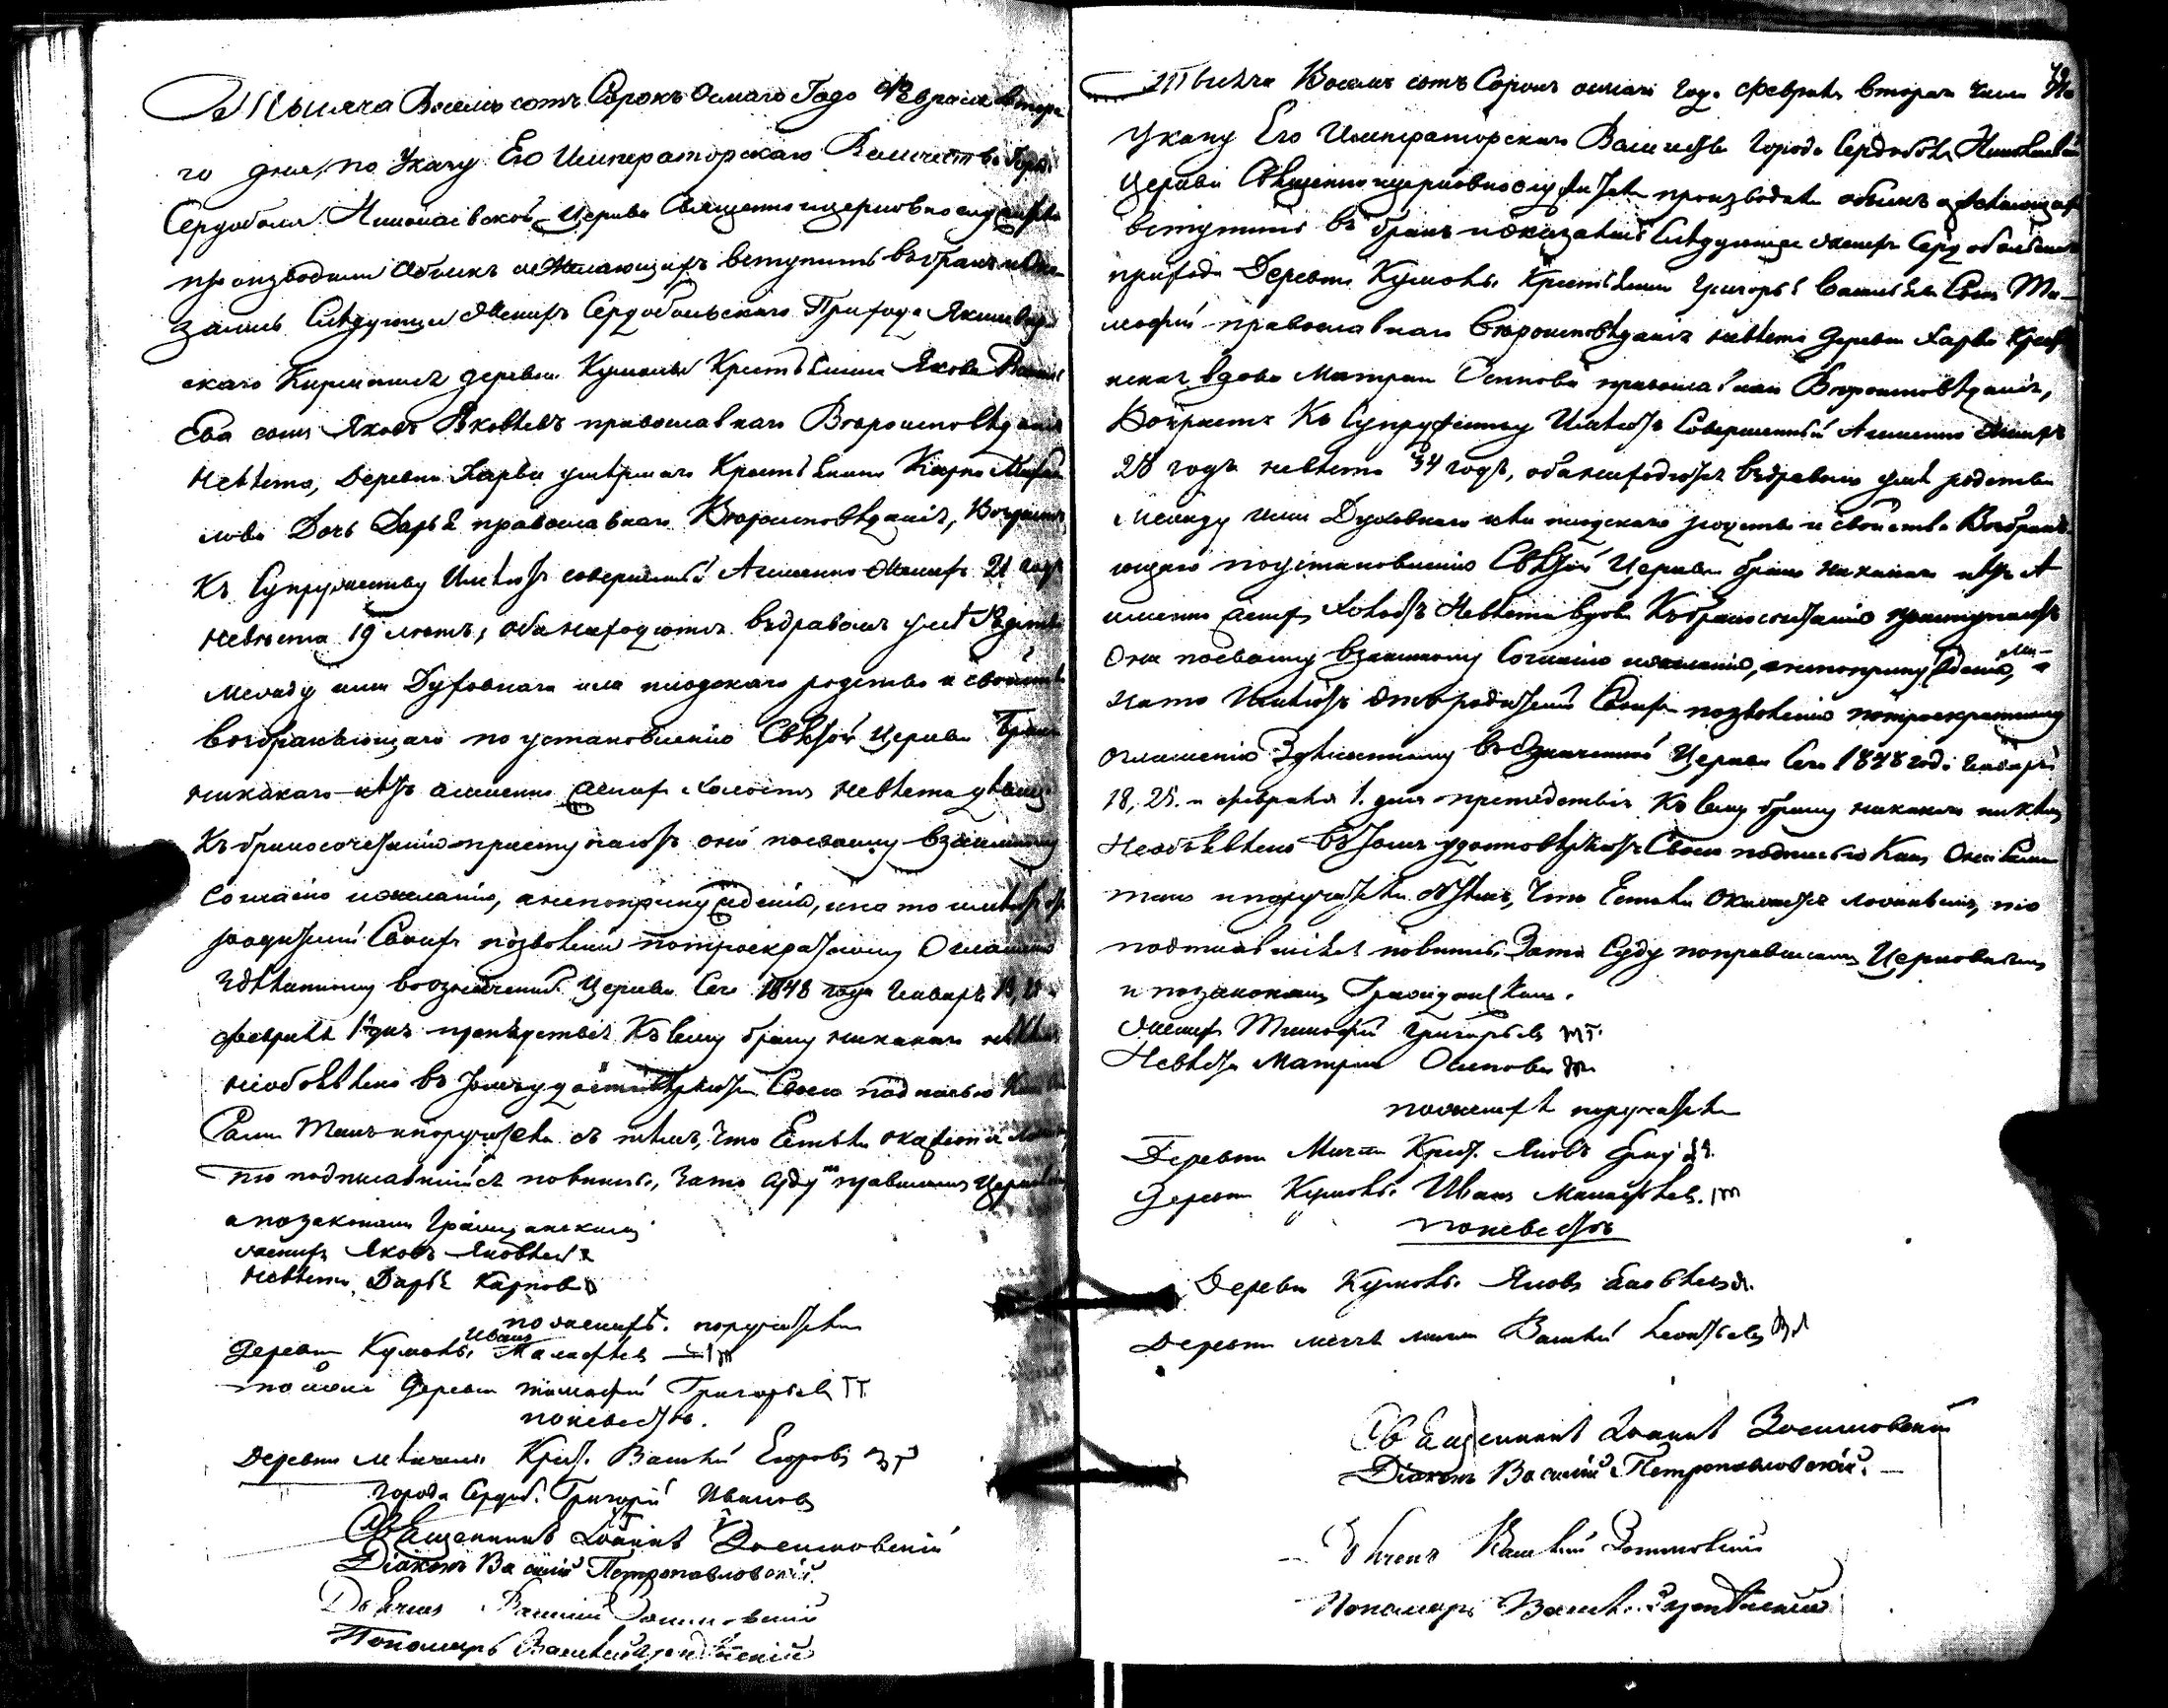 Тысяча Восемь сотъ Сорокъ Осмаго Года Февраля втора-
го дня, по Указу Его Императорскаго Величества Города
Сердоболя Николаевской Церкви Священноцерковнослужители
производили обыскъ о желающихъ вступить въ бракъ и ока-
залось Следующее Женихъ Сердобольскаго Прихода
скаго Кирхшпиля деревни Кумолы Крестьянина Якова
ева сынъ Яковъ Яковлевъ православнаго Вероисповѣданія
Невѣста, Деревни Харви умершаго Крестьянина Карпа
лова Дочь Дарья православнаго Вѣроисповѣданія, Возрастъ
Къ Супружеству Имѣютъ совершенный А именно Женихъ 21 годъ
невѣста 19 летъ, оба находятся въ здравомъ умѣ Родства
между ими Духовнаго или плодскаго родства и свойства
возбраняющаго по установленію Святой Церкви Бракъ
никакаго нѣтъ а именно женихъ холостъ невѣста девица
Къ бракосочетанію приступаютъ они по своему взаимному
Согласію и желанію, а не по принужденію, и на то имѣютъ отъ
родителей Своихъ позволеніе по троекратному Оглашенію
Здѣланному въ означенной Церкви Сего 1848 года Генваря 18, 25 и
февраля 1 дня препядствія Къ сему браку никакаго никѣмъ
не объявлено въ томъ удостовѣряютъ Своею подписью Какъ Они
Сами Такъ и поручители съ тѣмъ, что Естьли окажется
то подписавшійся повинны, за то Суду по правиламъ Церковнымъ
и по законамъ Гражданскимъ
женихъ Яковъ Яковлевъ
Невѣста Дарья Карпова
по женихѣ поручители
Деревни Кумолы Иванъ Малафѣевъ
той же Деревни Тимофей Григорьевъ ТГ
по невестѣ.
Деревни Крест. Василій Егоровъ
города Сердоб. Григорій Ивановъ
Священникъ Іоаннъ Зосимовскій
Діаконъ Василій Петропавловскій.
Дьячекъ Василій
Пономарь Василій
Тысяча Восемь сотъ Сорокъ осмаго года февраля втораго числа По
Указу Его Императорскаго Величества Города Сердоболя Николаевской
Церкви Священноцерковнослужители производили обыскъ о желающихъ
вступить въ бракъ и оказалось Слѣдующее женихъ Сердобольскаго
прихода Деревни Кумолы Крестьянина Григорья Васильева Сынъ Ти-
мофей православнаго Вероисповѣданія невѣста Деревни Харви Крест
янская вдова Матрена Осипова православнаго Вероисповѣданія,
Возрастъ Къ Супружеству Имѣютъ Совершенный А именно женихъ
28 годъ невѣста 34 годъ, оба находятся въ здравомъ умѣ родства
Между ими Духовнаго или плодскаго родства и свойства Возбраня-
ющаго по установленію Святой Церкви бракъ никакаго нѣтъ А
именно женихъ Холостъ Невѣста вдова Къ бракосочетанію приступаютъ
Они по своему взаимному Согласію и желанію, а не по принужденію,
на то Имѣютъ отъ родителей Своихъ позволеніе по троекратному
оглашенію Здѣланному въ Означенной Церкви Сего 1848 года Генваря
18, 25. и февраля 1. дня препядствія Къ сему браку никакаго никѣмъ
Необъявлено въ томъ удостовѣряютъ Своею подписью Какъ Они Сами
такъ и поручители съ тѣмъ, что Естьли Окажется ложнымъ, то
подписавшійся повинны. За то Суду по правиламъ Церковнымъ
и по законамъ Гражданскимъ.
женихъ Тимофей Григорьевъ
Невѣста Матрена Осипова
по женихѣ поручители
Деревни Крест. Яковъ
Деревни Кумолы Иванъ Малафѣевъ.
по невестѣ
Деревни Кумолы Яковъ Яковлевъ
Деревни Василій
Священникъ Іоаннъ Зосимовскій
Діаконъ Василій Петропавловскій.
Дьячекъ Василій
Пономарь Василій